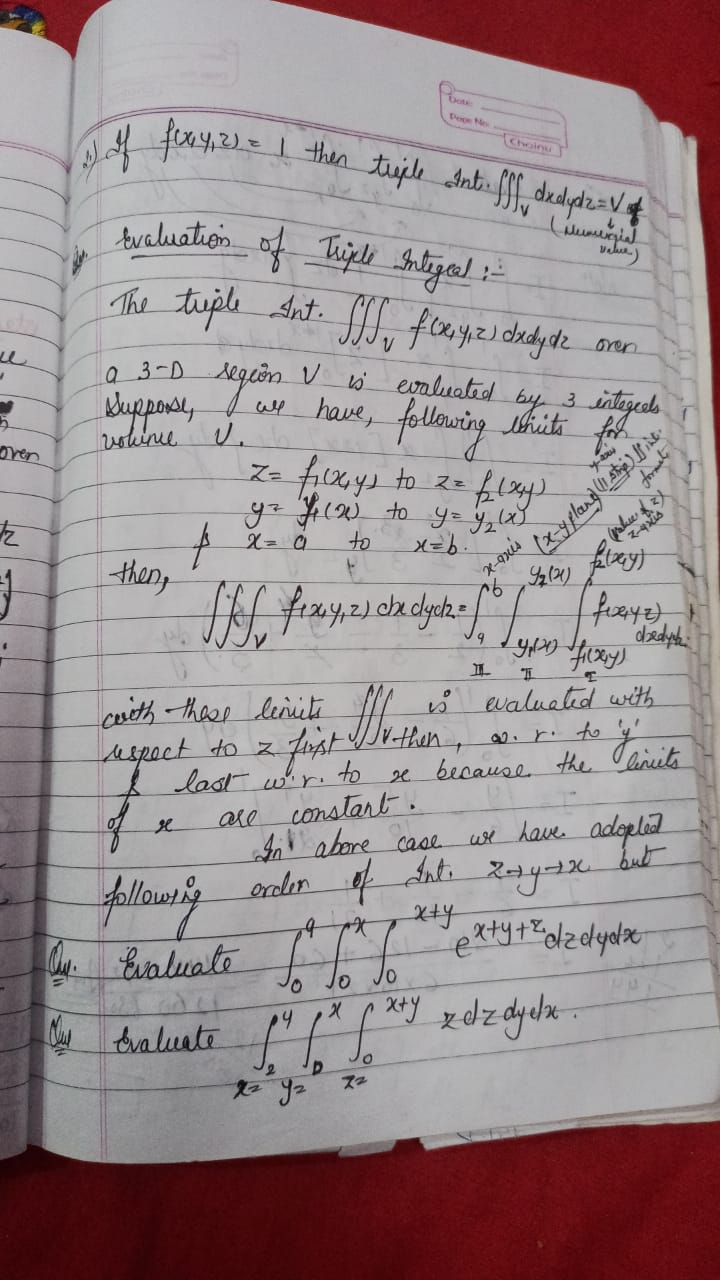 Date:
Page No.
Choinu
2.) If f(x,y,z) = 1 then triple Int. ∭_V dxdydz = V
(Numerical value)
Evaluation of Triple Integral :-
The triple Int. ∭_V f(x,y,z) dxdydz over
a 3-D region V is evaluated by 3 integrals
Suppose, we have, following limits for
volume V.
z = f₁(x,y) to z = f₂(x,y)
y = y₁(x) to y = y₂(x)
& x = a to x = b.
x-axis (x-y plane) (|| strip)
y-axis
(value of z)
z-axis
then,
∭_V f(x,y,z) dxdydz = ∫_a^b ∫_{y₁(x)}^{y₂(x)} ∫_{f₁(x,y)}^{f₂(x,y)} f(x,y,z) dxdydz.
III II I
with these limits ∭_V is evaluated with
respect to z first then, w. r. to 'y'
& last w.r. to x because the limits
of x are constant.
In above case we have adopted
following order of Int. z→y→x but
Qu. Evaluate ∫_0^a ∫_0^x ∫_0^{x+y} e^{x+y+z} dzdydx
Qu Evaluate ∫_2^4 ∫_0^x ∫_0^{x+y} z dz dydx.
x= y= z=
over